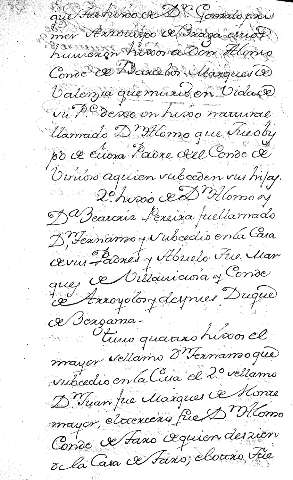 que fue hixo de Dn. Gonzalo pri
mer Arzovispo de Braga de
huvieron hixos a Don Alonso
Conde de Barcelos Marques de
Valenzia que murio en Vida de
su Pe. dexo un hixo natural
llamado Dn. Alonso que fue obis
po de evora Padre del Conde de
Vimioso a quien subceden sus hijos.
2º. hixo de Dn. Alonso y
Da. Beatriz Pereira fue llamado
Dn. Fernando y subcedio en la Casa
de sus Padres y Abuelo fue Mar
ques de Villaviciosa y Conde
de Arroyolos y despues Duque
de Berganza.
tuvo quatro hixos el
mayor se llamo Dn. Fernando que
subcedio en la Casa el 2º se llamo
Dn. Juan fue Marques de Monte
mayor, el tercero fue Dn. Alonso
Conde de Faro de quien deszien
de la Casa de Faro; el otro fue